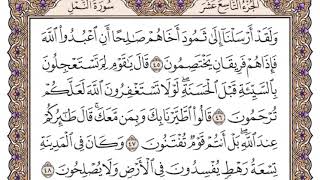 الجزء التاسع عشر
سورة النمل
وَلَقَدْ أَرْسَلْنَآ إِلَىٰ ثَمُودَ أَخَاهُمْ صَٰلِحًا أَنِ ٱعْبُدُواْ ٱللَّهَ
فَإِذَا هُمْ فَرِيقَانِ يَخْتَصِمُونَ ٤٥ قَالَ يَٰقَوْمِ لِمَ تَسْتَعْجِلُونَ
بِٱلسَّيِّئَةِ قَبْلَ ٱلْحَسَنَةِۖ لَوْلَا تَسْتَغْفِرُونَ ٱللَّهَ لَعَلَّكُمْ
تُرْحَمُونَ ٤٦ قَالُواْ ٱطَّيَّرْنَا بِكَ وَبِمَن مَّعَكَۚ قَالَ طَٰٓئِرُكُمْ
عِندَ ٱللَّهِۖ بَلْ أَنتُمْ قَوْمٌ تُفْتَنُونَ ٤٧ وَكَانَ فِي ٱلْمَدِينَةِ
تِسْعَةُ رَهْطٍ يُفْسِدُونَ فِي ٱلْأَرْضِ وَلَا يُصْلِحُونَ ٤٨